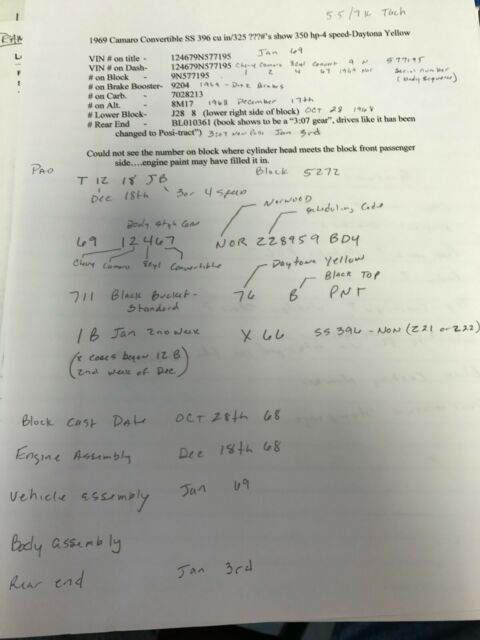 55/7K Tach
1969 Camaro Convertible SS 396 cu in/325 ???#'s show 350 hp-4 speed-Daytona Yellow
Jan 69
VIN # on title - 124679N577195
VIN # on Dash- 124679N577195 Chevy Camaro 8cyl Convert 9 N 577195
# on Block - 9N577195 1 2 4 67 1969 Nor Serial number
# on Brake Booster- 9204 1969 - Disc Brakes (body sequence)
# on Carb. - 7028213
# on Alt. - 8M17 1968 December 17th
# Lower Block- J28 8 (lower right side of block) OCT 28 1968
# Rear End - BL010361 (book shows to be a "3:07 gear", drives like it has been
changed to Posi-tract") 3:07 Non Posi Jan 3rd
Could not see the number on block where cylinder head meets the block front passenger
side....engine paint may have filled it in.
PAD T 12 18 JB Block 5272
Dec 18th 3 or 4 speed
Body Style Norwood Scheduling Code
69 12467 NOR 228959 BDY
Chevy Camaro 8cyl Convertible
Daytona Yellow
Black Top
711 Black Bucket- 76 B PNT
Standard
1B Jan 2nd week X 66 SS 396 - NON (Z21 or Z22)
(X codes began 12 B
2nd week of Dec)
Block Cast Date OCT 28th 68
Engine Assembly Dec 18th 68
Vehicle assembly Jan 69
Body assembly
Rear end Jan 3rd